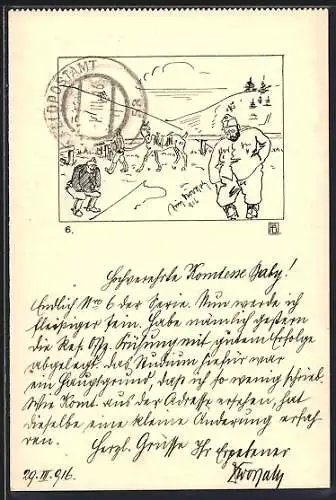 FELDPOSTAMT
53
1916
6.
Hochverehrte Komtesse Baby!
Endlich Nro 6 der Serie. Nun werde ich
fleissiger sein. Habe nämlich gestern
die Res. Offz. Prüfung mit gutem Erfolge
abgelegt. Das Studium hiefür war
ein Hauptgrund, daß ich so wenig schrieb.
Wie Komt. aus der Adresse ersehen, hat
dieselbe eine kleine Änderung erfah
ren. Herzl. Grüsse Ihr Ergebener
29. III. 916.